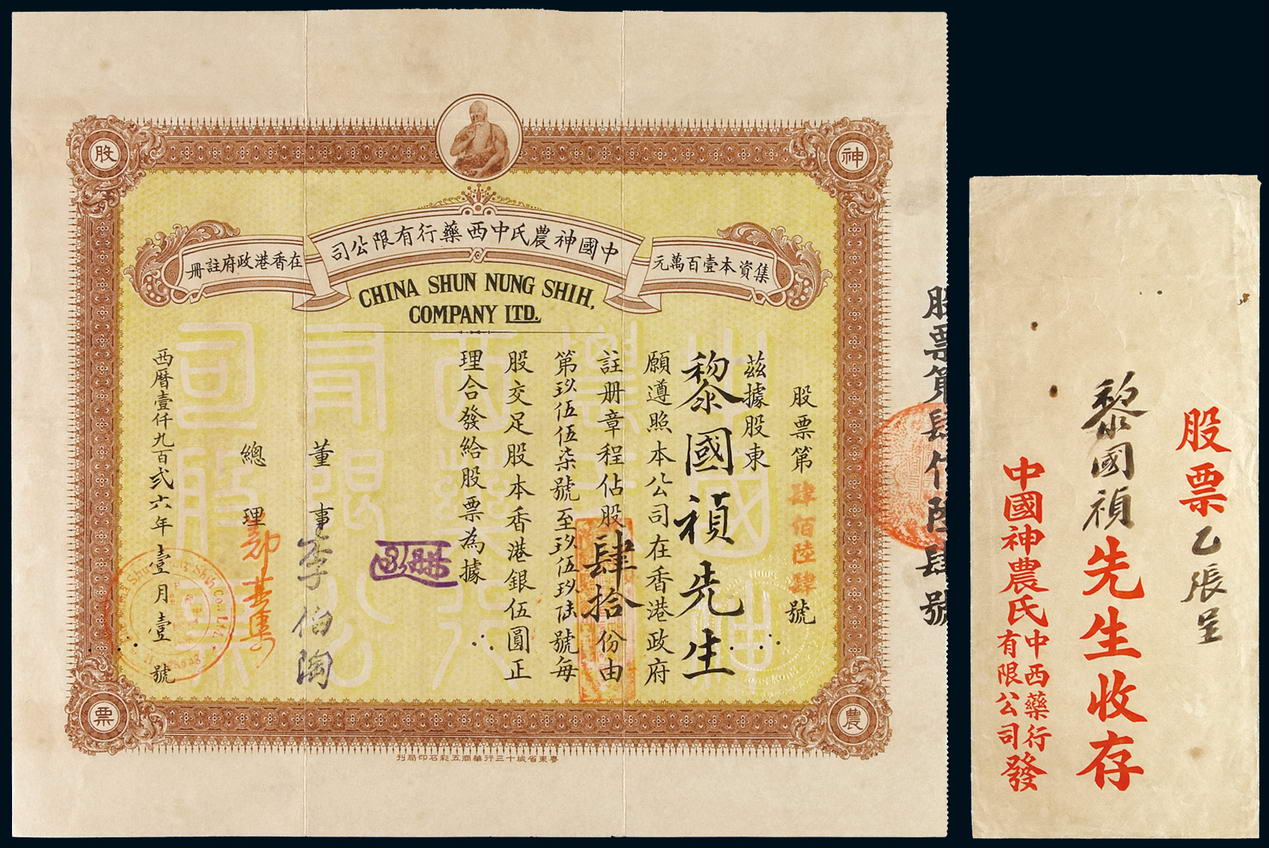 神
股
農
票
中國神農氏中西藥行有限公司
集資本壹百萬元
在香港政府註冊
CHINA SHUN NUNG SHIH,
COMPANY LTD.
股票第肆佰陸肆號
茲據股東
黎國禎先生
願遵照本公司在香港政府
註册章程佔股肆拾份由
第玖伍伍柒號至玖伍玖陸號每
股交足股本香港銀伍圓正
理合發給股票為據
董事
李伯陶
總理
西曆壹仟九百弍六年壹月壹號
粵東省城十三行華商五彩石印局刊
股票
乙張呈
黎國禎先生收存
中國神農氏中西藥行有限公司發